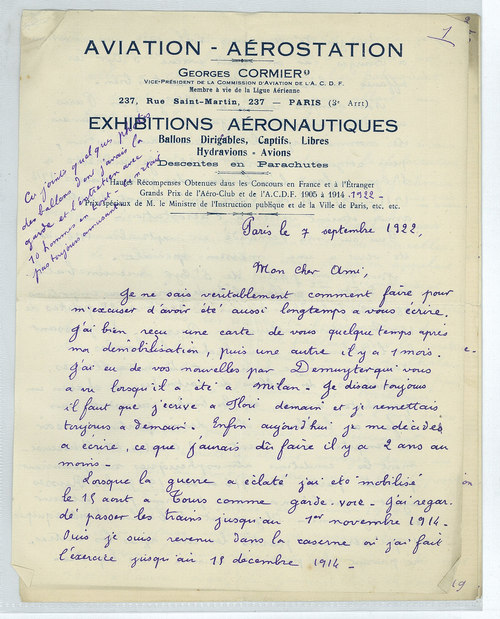 1
AVIATION - AÉROSTATION
GEORGES CORMIER
VICE-PRÉSIDENT DE LA COMMISSION D'AVIATION DE L'A. C. D. F.
Membre à vie de la Ligue Aérienne
237, RUE SAINT-MARTIN, 237 — PARIS (3e Arrt)
EXHIBITIONS AÉRONAUTIQUES
Ballons Dirigeables, Captifs, Libres
Hydravions - Avions
Descentes en Parachutes
Hautes Récompenses Obtenues dans les Concours en France et à l'Étranger
Grands Prix de l'Aéro-Club et de l'A.C.D.F. 1905 à 1914 1922 -
Prix spéciaux de M. le Ministre de l'Instruction publique et de la Ville de Paris, etc. etc.
Ci joints quelques photos
des ballons dont j'avais la
garde et l'entretien avec
70 hommes en
pas toujours amusant
Paris le 7 septembre 1922,
Mon cher Ami,
Je ne sais veritablement comment faire pour
m'excuser d'avoir été aussi longtemps a vous écrire.
J'ai bien reçu une carte de vous quelque temps après
ma démobilisation, puis une autre il y a 1 mois.
J'ai eu de vos nouvelles par Demuyter qui vous
a vu lorsqu'il a été a Milan. Je disais toujours
il faut que j'écrive a Flori demain et je remettais
toujours a demain. Enfin aujourd'hui je me décide
a écrire, ce que j'aurais dû faire il y a 2 ans au
moins -
Lorsque la guerre a éclaté j'ai été mobilisé
le 15 aout a Tours comme garde-voie - J'ai regar-
dé passer les trains jusqu'au 1er novembre 1914.
Puis je suis revenu dans la caserne où j'ai fait
l'exercice jusqu'au 15 decembre 1914 -
19